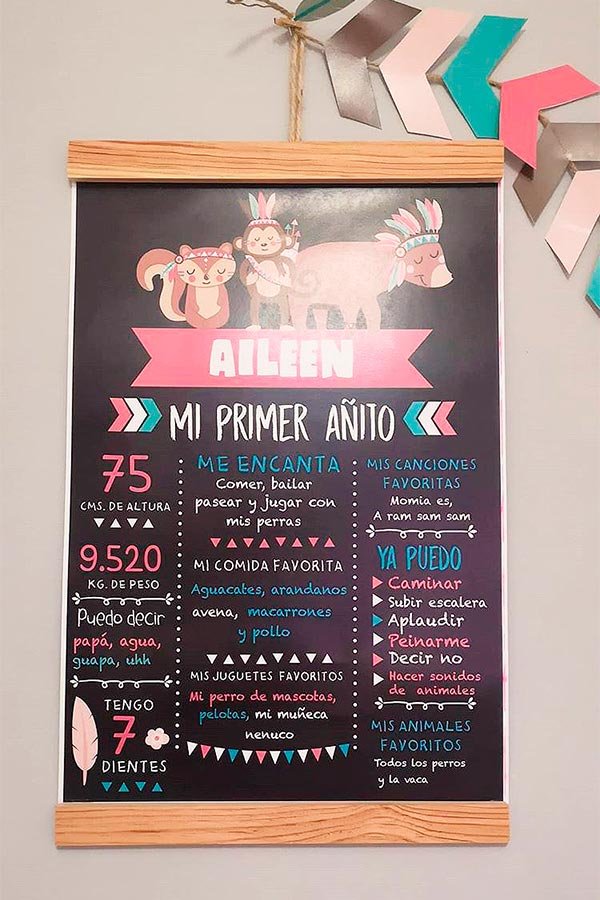 AILEEN
MI PRIMER AÑITO
75
CMS. DE ALTURA
9.520
KG. DE PESO
Puedo decir
papá, agua,
guapa, uhh
TENGO
7
DIENTES
ME ENCANTA
Comer, bailar
pasear y jugar con
mis perras
MI COMIDA FAVORITA
Aguacates, arandanos
avena, macarrones
y pollo
MIS JUGUETES FAVORITOS
Mi perro de mascotas,
pelotas, mi muñeca
nenuco
MIS CANCIONES
FAVORITAS
Momia es,
A ram sam sam
YA PUEDO
Caminar
Subir escalera
Aplaudir
Peinarme
Decir no
Hacer sonidos
de animales
MIS ANIMALES
FAVORITOS
Todos los perros
y la vaca